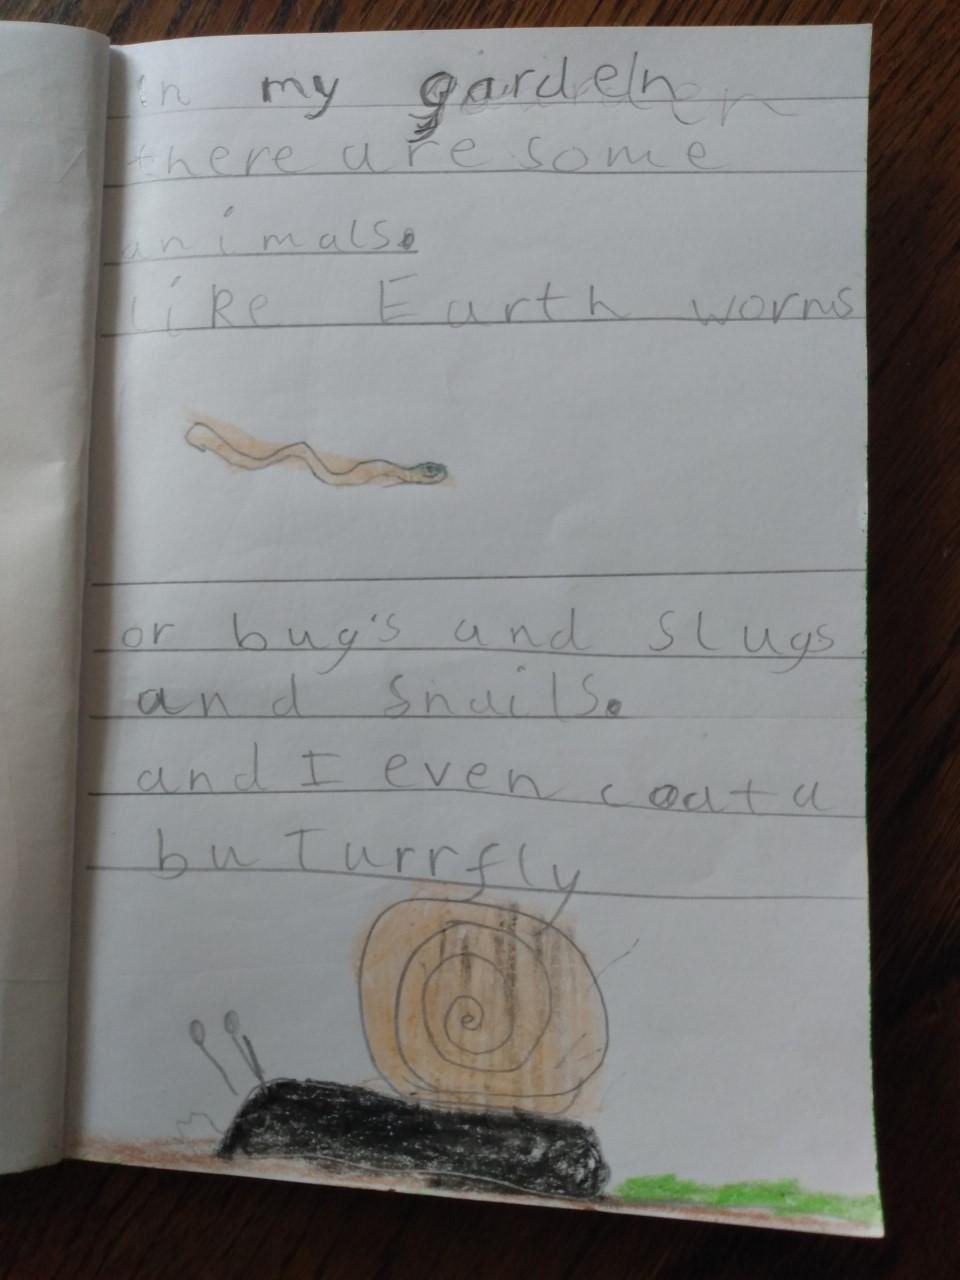 in my gardeln
there are some
animals.
like Earth worms
or bug's and slugs
and snails.
and I even coat a
buTurrfly